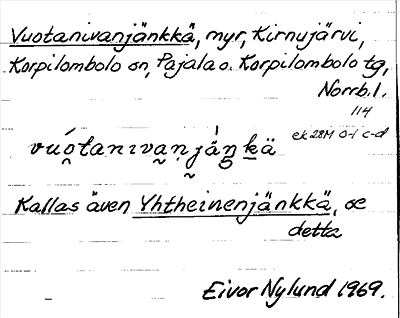 Vuotanivanjänkkä, myr, Kirnujärvi,
Korpilombolo sn, Pajala o. Korpilombolo tg,
Norrb.l.
114
ek 28M 0-1 c-d
vuótanıvaṇjáŋkä
Kallas även Yhtheinenjänkkä, se
detta
Eivor Nylund 1969.